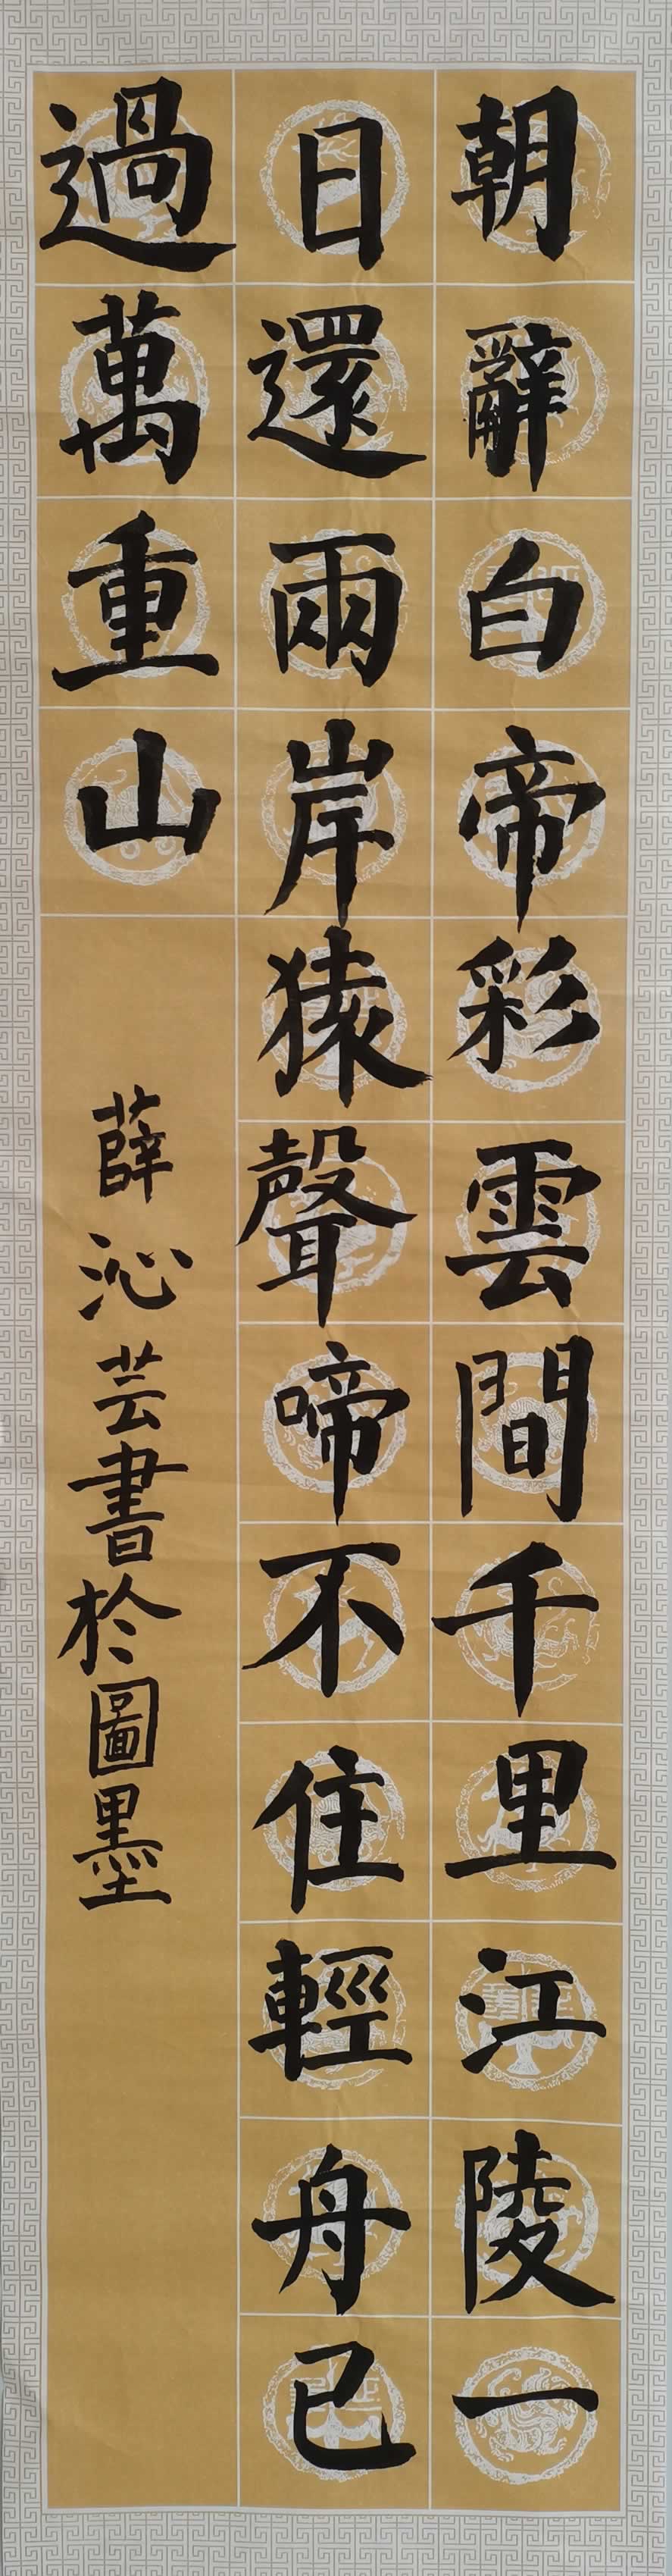 朝辭白帝彩雲間千里江陵一
日還兩岸猿聲啼不住輕舟已
過萬重山
薛沁芸書於圖墨